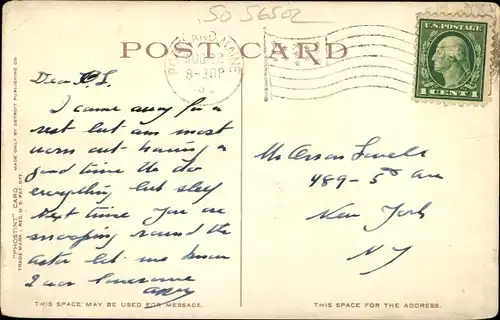 SO 56502
POST CARD
PORTLAND, MAINE
AUG
8-30P
U.S. POSTAGE
1 CENT 1
Dear
I came away for a
rest but am most
worn out having a
good time We do
everything but sleep
Next time you are
snooping round the
Astor let me know
I am lonesome
Mr Oscar
489-5th Ave
New York
NY
"PHOSTINT" CARD
TRADE MARK REG. U.S. PAT. OFF.
MADE ONLY BY DETROIT PUBLISHING CO.
THIS SPACE MAY BE USED FOR MESSAGE.
THIS SPACE FOR THE ADDRESS.